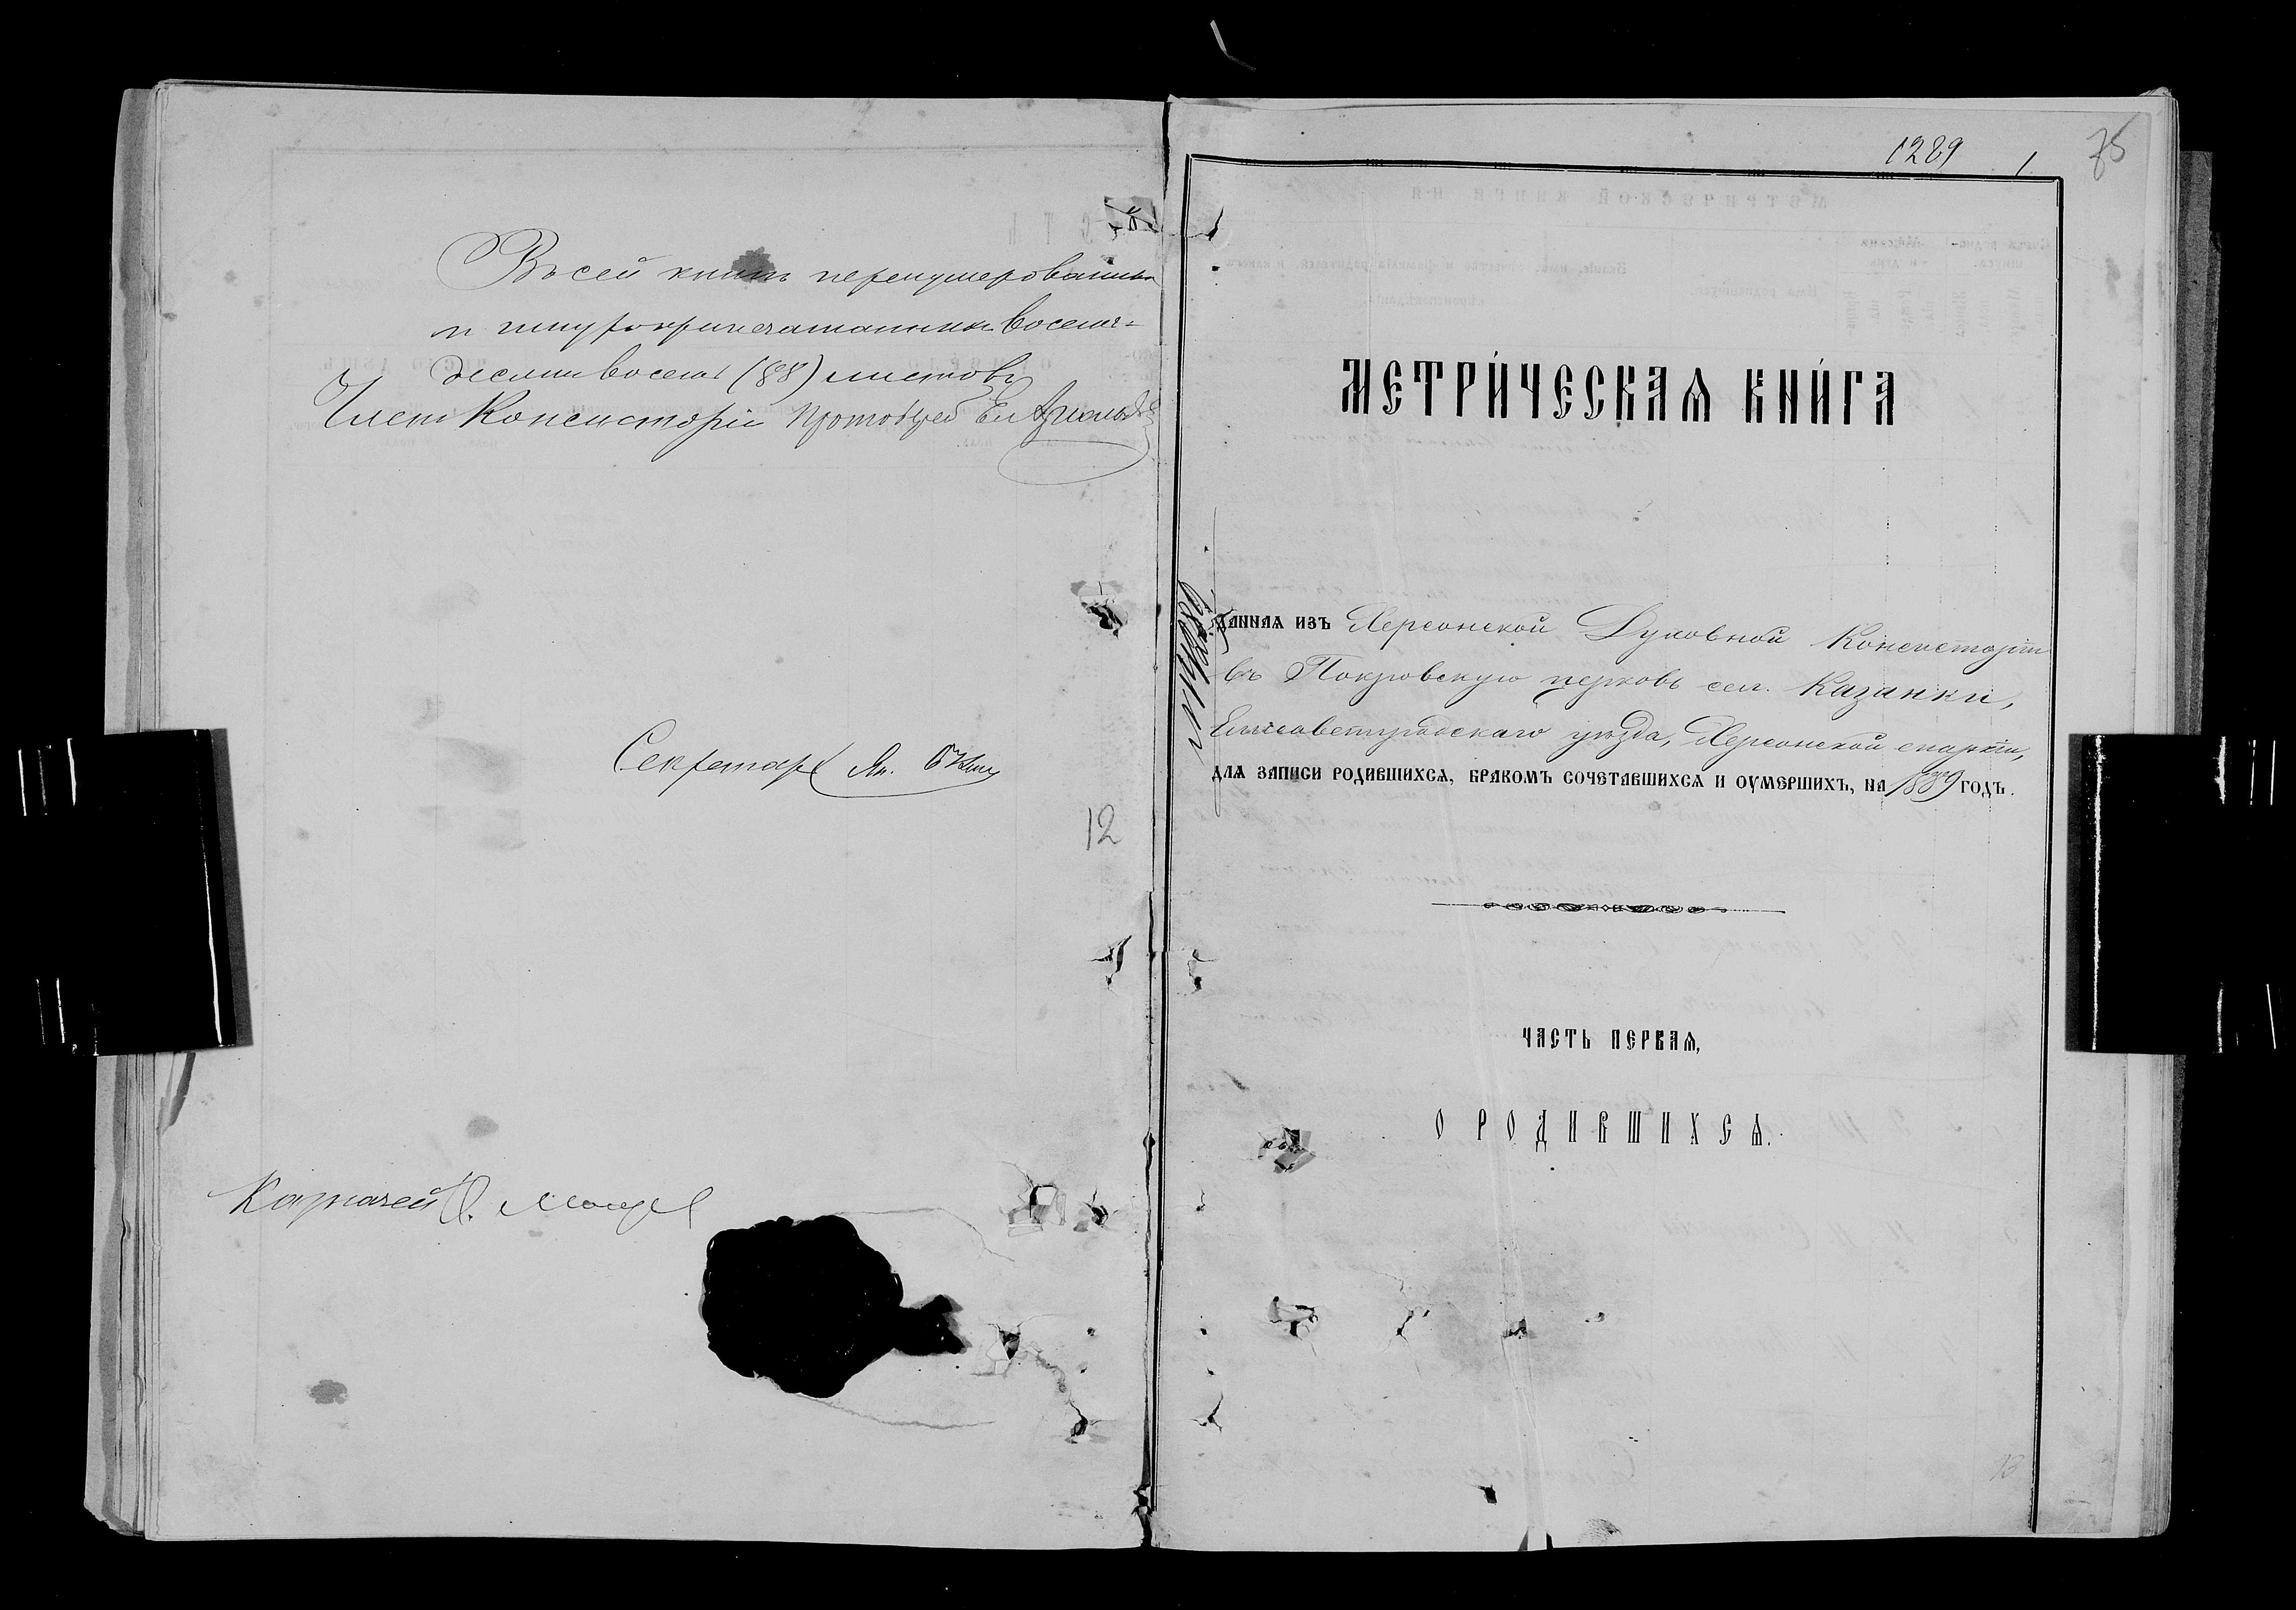 Въ сей книгѣ перенумерованныхъ
и шнуроприпечатанныхъ восемь-
десятъ восемь (88) листовъ
Членъ Консисторіи Протоіерей
Секретарь
12
Казначей
1289
1.
75
МЕТРИ́ЧЕСКАѦ КНИ́ГА
ДАННАѦ ИЗЪ Херсонской Духовной Консисторіи
въ Покровскую церковь сел. Казанки,
Елисаветградскаго уѣзда, Херсонской епархіи,
ДЛѦ ЗАПИСИ РОДИВШИХСѦ, БРАКОМЪ СОЧЕТАВШИХСѦ И ОУМЕРШИХЪ, НА 1889 ГОДЪ.
ЧАСТЬ ПЕРВАѦ,
О РОДИВШИХСѦ.
13